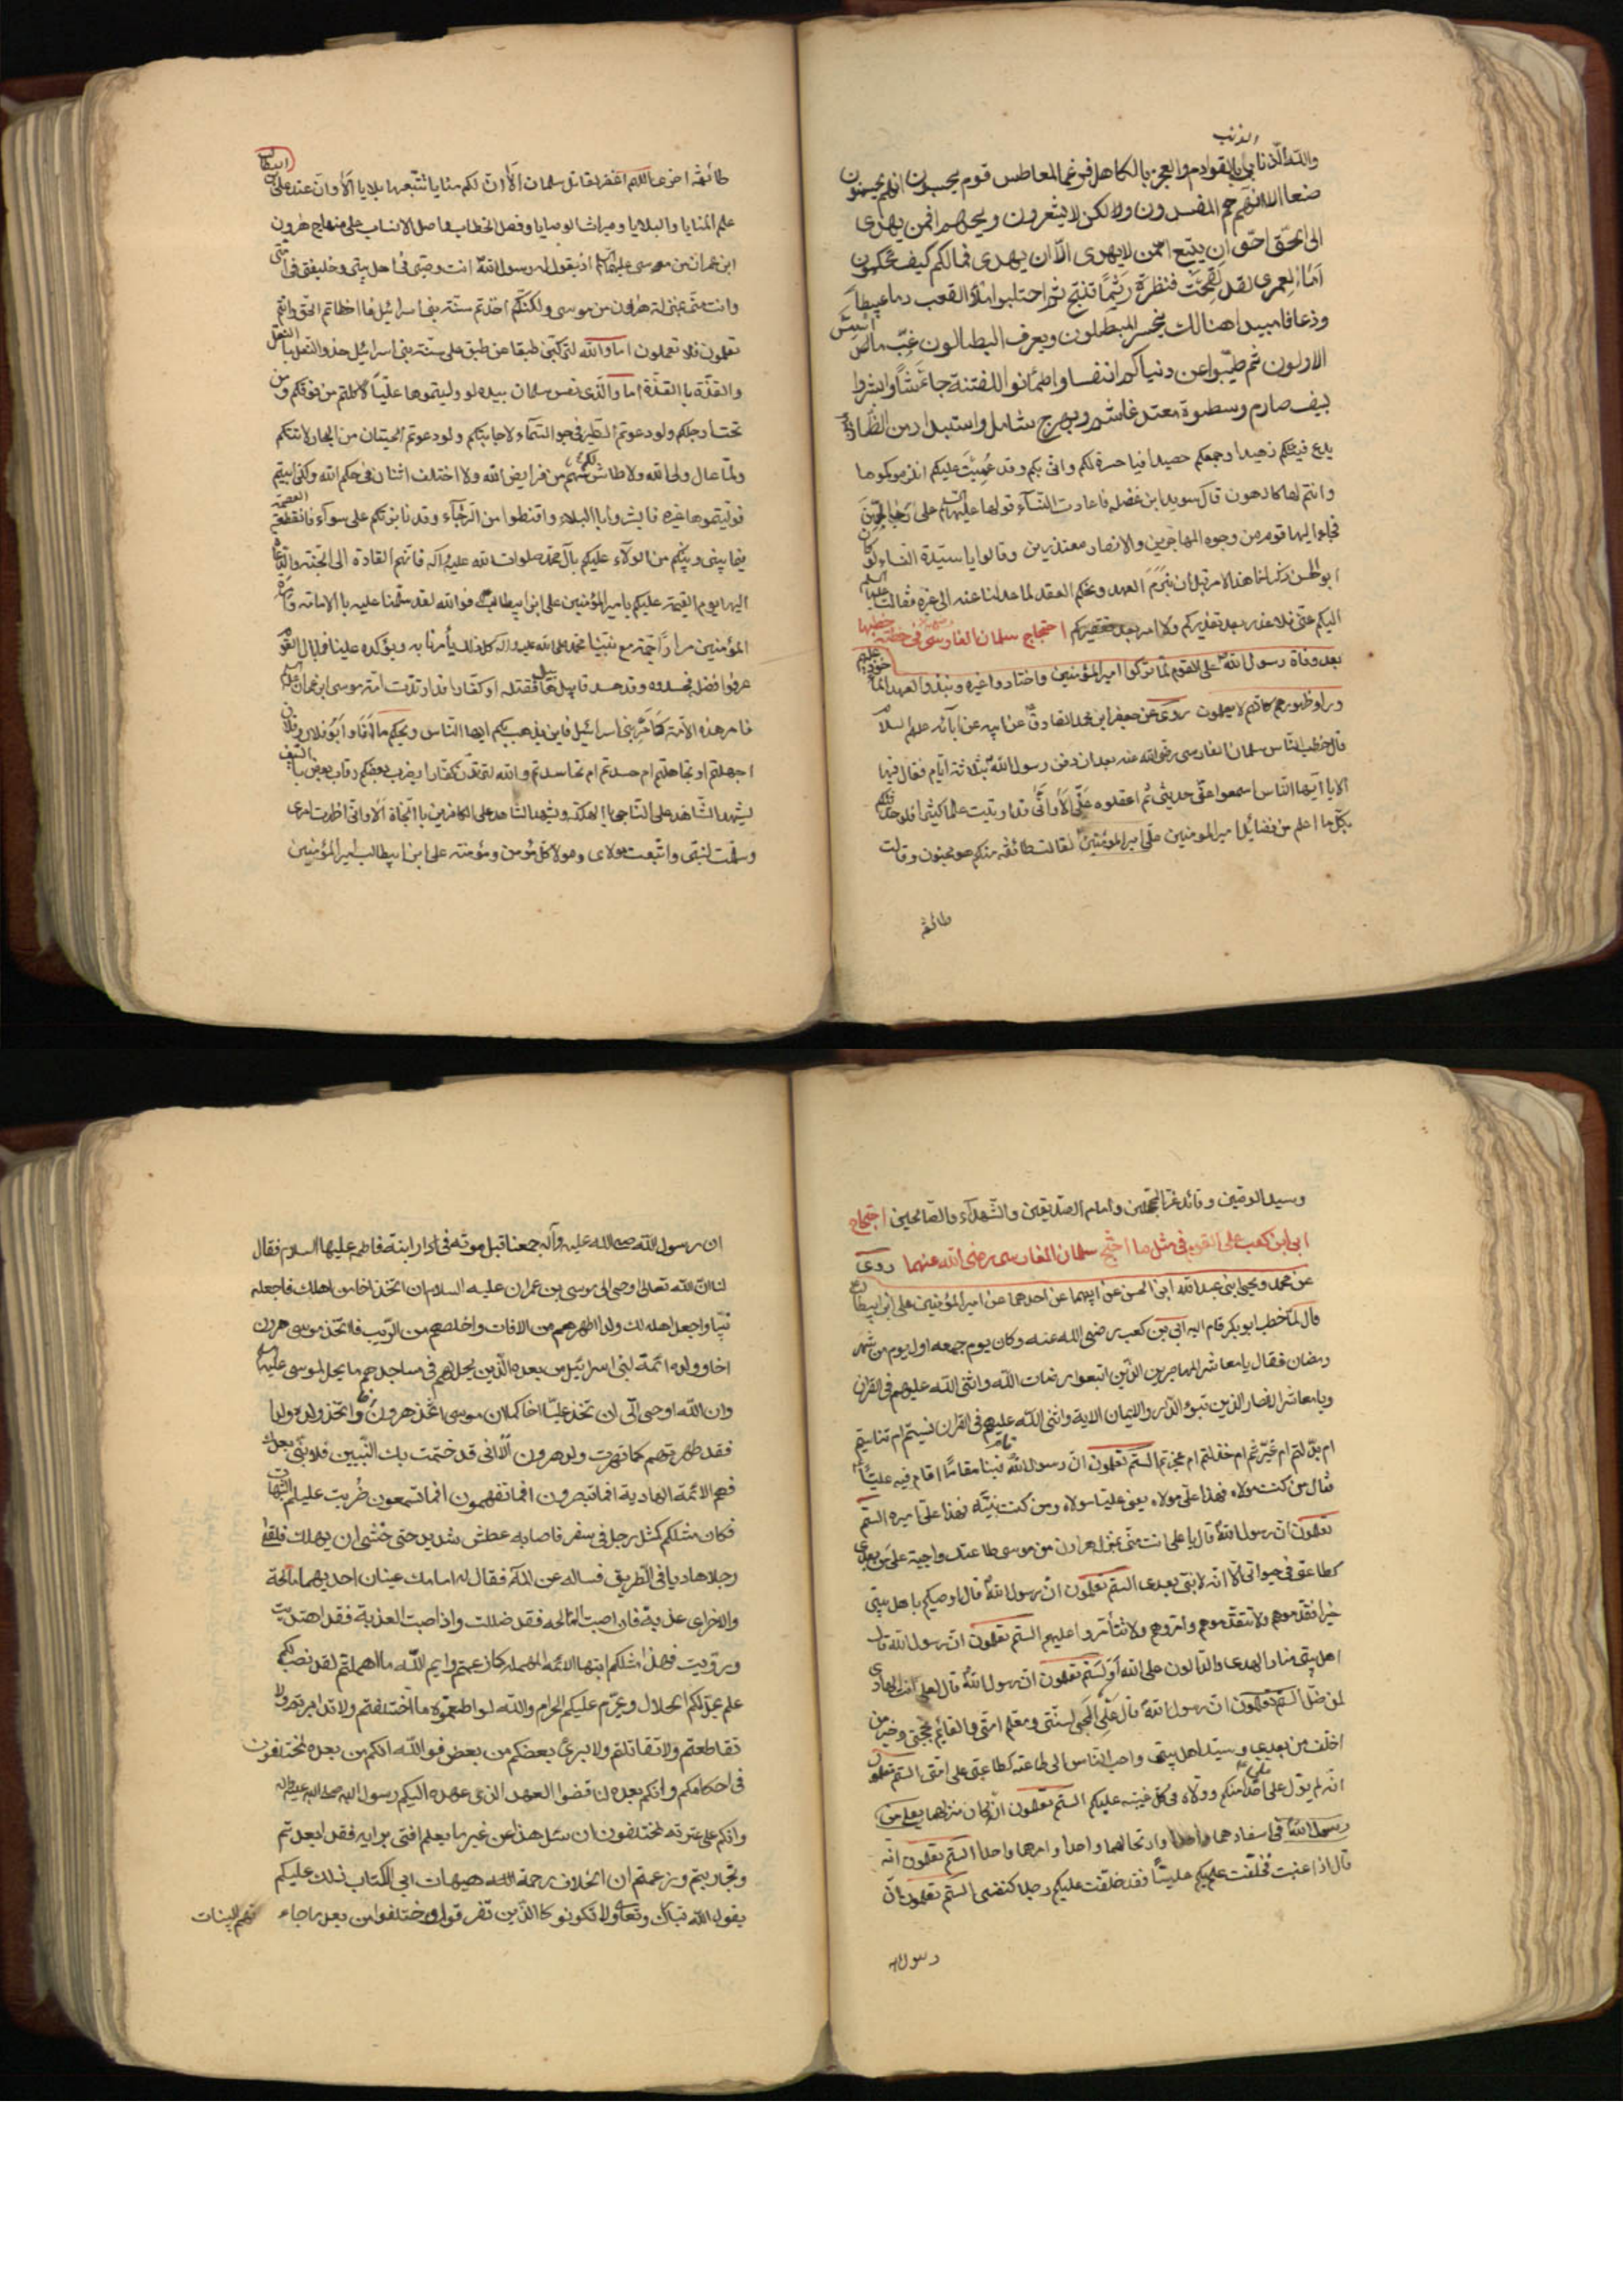 والله الذنابى بالقوادم والعجز بالكاهل فرغما لمعاطس قوم يحسبون انهم يحسنون
صنعا الا انهم هم المفسدون ولكن لا يشعرون ويحهم افمن يهدى
الى الحق احق ان يتبع امن لا يهدى الا ان يهدى فما لكم كيف تحكمون
اما لعمرى لقد لقحت فنظرة ريثما تنتج ثم احتلبوا ملأ القعب دما عبيطا
وذعافا مبيدا هنالك يخسر المبطلون ويعرف البطالون غب ما اسس
الاولون ثم طيبوا عن دنياكم انفسا واطمأنوا للفتنة جاءشا وابشروا
بسيف صارم وسطوة معتد غاشم وبهرج شامل واستبداد من الظالمين
يدع فيئكم زهيدا وجمعكم حصيدا فيا حسرة لكم وانى بكم وقد عميت عليكم انلزمكموها
وانتم لها كارهون قال سويد ابن غفله فاعادت النساء قولها عليها السلم على رجالهن
فجاء اليها قوم من وجوه المهاجرين والانصار معتذرين وقالوا يا سيدة النساء لو كان
ابو الحسن ذكر لنا هذا الامر قبل ان نبرم العهد ونحكم العقد لما عدلنا عنه الى غيره فقالت عليها السلم
اليكم عنى فلا عذر بعد تعذيركم ولا امر بعد تقصيركم احتجاج سلمان الفارسى فى خطبة خطبها
بعد وفاة رسول الله على القوم لما تركوا امير المؤمنين واختاروا غيره ونبذوا العهد المأخوذ عليهم
وراء ظهورهم كانهم لا يعلمون روى عن جعفر ابن محمد الصادق عن ابيه عن آبائه عليهم السلام
قال خطب الناس سلمان الفارسى رضى الله عنه بعد ان دفن رسول الله بثلاثة ايام فقال فيها
الا يا ايها الناس اسمعوا عنى حديثى ثم اعقلوه عنى الا وانى قد اوتيت علما كثيرا فلو حدثتكم
بكل ما اعلم من فضائل امير المومنين على امير المؤمنين لقالت طائفه منكم هو مجنون وقالت
طائفه
طائفه اخرى اللهم اغفر لقاتل سلمان الا ان لكم منايا تتبعها بلايا الا وان عند على ابن ابيطالب
علم المنايا والبلايا وميراث الوصايا وفصل الخطاب واصل الانساب على منهاج هرون
ابن عمران من موسى عليهما السلم اذ يقول له رسول الله انت وصيى فى اهل بيتى وخليفتى فى امتى
وانت منى بمنزلة هرون من موسى ولكنكم اخذتم سنة بنى اسرائيل فاخطاتم الحق وانتم
تعلمون فلا تعملون اما والله لتركبن طبقا عن طبق على سنة بنى اسرائيل حذو النعل بالنعل
والقذة بالقذة اما والذى نفس سلمان بيده لو وليتموها عليا لاكلتم من فوقكم ومن
تحت ارجلكم ولو دعوتم الطير فى جو السماء لاجابتكم ولو دعوتم الحيتان من البحار لاتتكم
ولما عال ولى الله ولا طاش لكم سهم من فرايض الله ولا اختلف اثنان فى حكم الله ولكن ابيتم
فوليتموها غيره فابشروا بالبلاء واقنطوا من الرخاء وقد نابذتكم على سواء فانقطعت العصمة
فيما بينى وبينكم من الولاء عليكم بآل محمد صلوات الله عليه وآله فانهم القادة الى الجنة والدعاة
اليها يوم القيمة عليكم بامير المؤمنين على ابن ابيطالب فوالله لقد سلمنا عليه بالامامة وامرة
المؤمنين مرارا جمة مع نبينا محمد صلى الله عليه واله كل ذلك يأمرنا به ويؤكده علينا فما بال القوم
عرفوا فضله فحسدوه وقد حسد قابيل هابيل فقتله او كفارا قد ارتدت امة موسى ابن عمران عليه السلم
فامر هذه الامة كامر بنى اسرائيل فاين يذهب بكم ايها الناس ويحكم ما انا وابو فلان وفلان
اجهلتم او تجاهلتم ام حسدتم ام تحاسدتم والله لترتدن كفارا يضرب بعضكم رقاب بعض بالسيف
يشهد الشاهد على الناجى بالهلكة ويشهد الشاهد على الكافرين بالنجاة الا وانى اظهرت امرى
وسلمت لنبيى واتبعت مولاى ومولا كل مؤمن ومؤمنة على ابن ابيطالب امير المؤمنين
وسيد الوصين وقائد غر المحجلين وامام الصديقين والشهداء والصالحين احتجاج
ابى ابن كعب على القوم فى مثل ما احتج سلمان الفارسى رضى الله عنهما روى
عن محمد ويحيى ابنى عبدالله ابن الحسن عن ابيهما عن احدهما عن امير المؤمنين على ابن ابيطالب ع
قال لما خطب ابوبكر قام اليه ابى بن كعب رضى الله عنه وكان يوم جمعه اول يوم من شهر
رمضان فقال يا معاشر المهاجرين الذين اتبعوا رضات الله واثنى الله عليهم فى القران
ويا معاشر الانصار الذين تبوؤ الدار والايمان الاية واثنى الله عليهم فى القران نسيتم ام تناسيتم
ام بدلتم ام غيرتم ام خذلتم ام عجزتم الستم تعلمون ان رسول الله قام فينا مقاما اقام فيه عليا
فقال من كنت مولاه فهذا على مولاه يعنى عليا مولاه ومن كنت نبيه فهذا على اميره الستم
تعلمون ان رسول الله قال يا على انت منى بمنزلة هرون من موسى طاعتك واجبة على من بعدى
كطاعتى فى حيوتى الا انه لا نبى بعدى الستم تعلمون ان رسول الله قال اوصيكم باهل بيتى
خيرا فقدموهم ولا تتقدموهم وامروهم ولا تتأمروا عليهم الستم تعلمون ان رسول الله قال
اهل بيتى منار الهدى والدالون على الله او لستم تعلمون ان رسول الله قال لعلى انت الهادى
لمن ضل الستم تعلمون ان رسول الله قال على المحيى لسنتى ومعلم امتى والقائم بحجتى وخير من
اخلف من بعدى وسيد اهل بيتى واحب الناس الى طاعته كطاعتى على امتى الستم تعلمون
انه لم يول على على احدا منكم وولاه فى كل غيبه عليكم الستم تعلمون ان كان منزلهما
رسول الله فى اسفارهما واحدا وارتحالهما واحدا وامرهما واحدا الستم تعلمون انه
قال اذا غبت فخلفت عليكم عليا فقد خلفت عليكم رجلا كنفسى الستم تعلمون ان
رسول الله
ان رسول الله صلى الله عليه وآله جمعنا قبل موته فى دار ابنة فاطمه عليها السلام فقال
لنا ان الله تعالى اوحى الى موسى بن عمران عليه السلام ان اتخذ اخا من اهلك فاجعله
نبيا واجعل اهله لك ولدا اطهرهم من الافات واخلصهم من الريب فاتخذ موسى هرون
اخا وولده ائمة لبنى اسرائيل من بعده الذين يحل لهم فى مساجدهم ما يحل لموسى عليه السلم
وان الله اوحى الى ان تخذ عليا اخا كما ان موسى اتخذ هرون اخا واتخذ ولده ولدا
فقد طهرتهم كما تهرت ولد هرون الا انى قد ختمت بك النبيين فلا نبى بعدك
فهم الائمة الهادية افما تبصرون افما تفهمون افما تسمعون ضربت عليكم الشبهات
فكان مثلكم كمثل رجل فى سفر فاصابه عطش شديد حتى خشى ان يهلك فلقى
رجلا هاديا فى الطريق فساله عن الماء فقال له امامك عينان احديهما مالحة
والاخرى عذبة فان اصبت المالحه فقد ضللت واذا صبت العذبة فقد اهتديت
ورويت فهذا مثلكم ايتها الائمه المهملة كما زعمتم وايم الله ما اهملتم لقد نصب لكم
علم يحل لكم الحلال ويحرم عليكم الحرام والله لو اطعتموه ما اختلفتم ولا تدابرتم ولا
تقاطعتم ولا تقاتلتم ولا برئ بعضكم من بعض فو الله انكم من بعده لمختلفون
فى احكامكم وانكم بعده لنا قضوا العهد الذى عهده اليكم رسول الله صلى الله عليه واله
وانكم على عترته لمختلفون ان سئل هذا عن غير ما يعلم افتى برايه فقد ابعدتم
وتجاريتم وزعمتم ان الخلاف رحمة الله هيهات ابى الكتاب ذلك عليكم
يقول الله تبارك وتعالى ولا تكونو كالذين تفرقوا واختلفوا من بعد ما جاءهم البينات